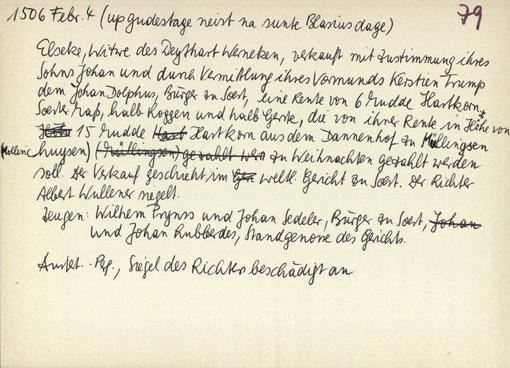 1506 Febr. 4 (up gudestage neist na sunte Blasius dage) 79
Elseke, Witwe des Deythart Werneken, verkauft mit Zustimmung ihres
Sohns Johan und durch Vermittlung ihres Vormunds Kerstien Trump
dem Johan Dolphus, Bürger zu Soest, eine Rente von 6 Mudde Hartkorn,
Soester Maß, halb Roggen und halb Gerste, die von ihrer Rente in Höhe von
15 Mudde Hartkorn aus dem Dannenhof zu Müllingsen
(Mollinc
huysen) (Müllingsen) gezahlt wer zu Weihnachten gezahlt werden
soll. Der Verkauf geschieht im weltl. Gericht zu Soest. Der Richter
Albert Wullener siegelt.
Zeugen: Wilhem Prynss und Johan Sedeler, Bürger zu Soest, Johan
und Johan Rubberdes, Standgenosse des Gerichts.
Ausfert. Pg., Siegel des Richters beschädigt an